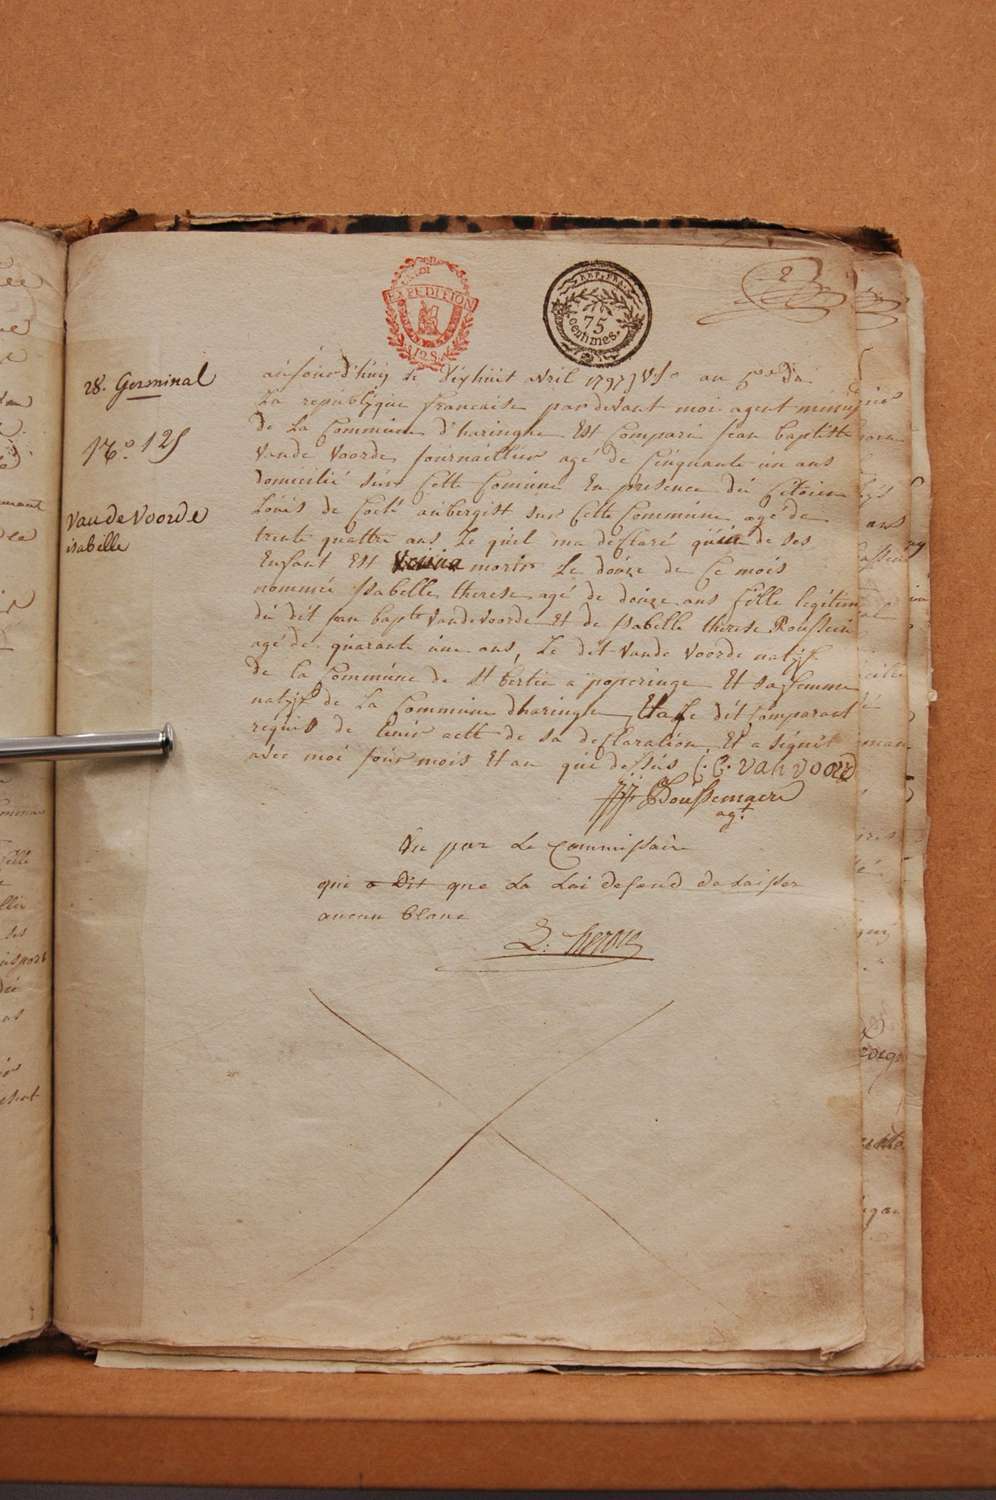 2
LOI
EXPEDITION
REP. FRA.
75
centimes.
28. Germinal
N.° 125
Van de Voorde
isabelle
aújourd'húij le dixhúit avril 1797 VS. an 5.me Da
La republique francaise pardevant moi agent municipal
de La Commúne d'haringhe Est Comparú jean baptiste
Vande Voorde journaillier agé de Cinquante ún ans
domicilié súr Cette Comúne En presence dú Citoien
Loúis de Coclé aubergist sur Cette Commune agé de
trente quattre ans Le quel ma declaré qúún de ses
Enfant Est morir Le doúze de Ce mois
nommée Isabelle therese agé de doúze ans fille legitime
dú dit jean bapte vande voorde Et de Isabelle therese Rousseú
agé de quarante úne ans, Le dit vande voorde natif
de la Commúne de st bertin a poperinge Et sa femme
natif de La Commune dharinghe, Et a Le dit Comparant
requis de tenir acte de sa declaration, Et a signét
avec moi joúr mois Et an que dessús J. B. VanVoorde
J: J: Boússemaere
agt
Vu par Le Commissair
qui a Dit que La Loi defend de Laisser
aucun blanc
L: heron